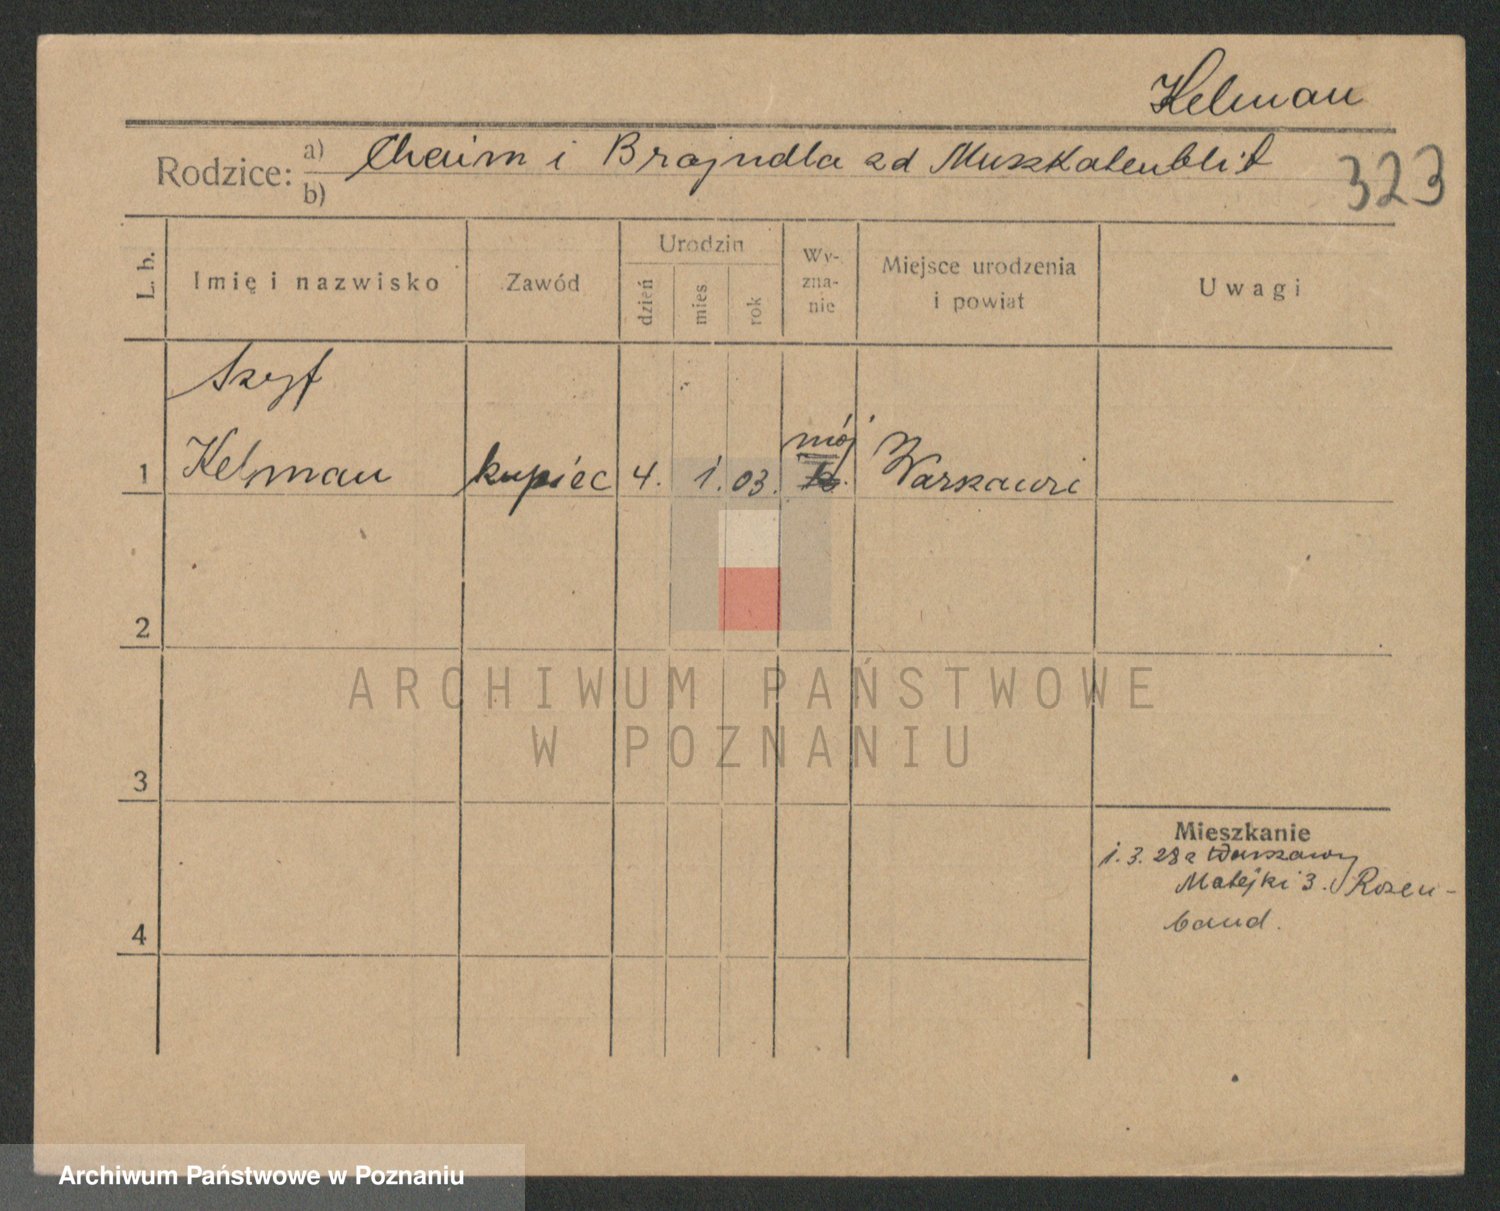 Kelman
Rodzice: a) Chaim i Brajndla zd Muszkatenblit
b)
323
L. b.
Imię i nazwisko
Zawód
Urodzin
dzień
mies
rok
Wy-
zna-
nie
Miejsce urodzenia
i powiat
Uwagi
Szyf
1 Kelman kupiec 4. 1. 03. mój Warszawie
2
3
4
Mieszkanie
1. 3. 28 z Warszawy
Matejki 3. Rosen-
band.
ARCHIWUM PAŃSTWOWE
W POZNANIU
Archiwum Państwowe w Poznaniu